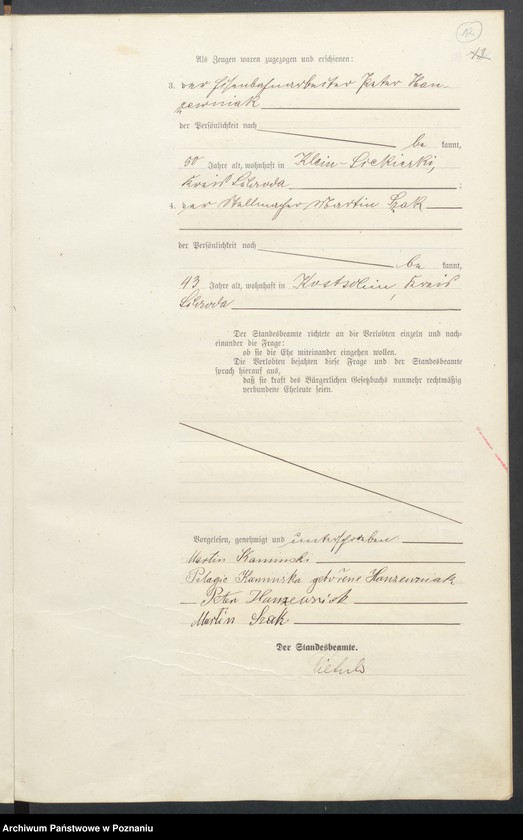 12
13
Als Zeugen waren zugezogen und erschienen:
3. der Eisenbahnarbeiter Peter Han-
zewniak
der Persönlichkeit nach
be kannt,
50 Jahre alt, wohnhaft in Klein-Siekierki,
Kreis Schroda
4. der Stellmacher Martin Szak
der Persönlichkeit nach
be kannt,
43 Jahre alt, wohnhaft in Kostschin, Kreis
Schroda
Der Standesbeamte richtete an die Verlobten einzeln und nach-
einander die Frage:
ob sie die Ehe miteinander eingehen wollen.
Die Verlobten bejahten diese Frage und der Standesbeamte
sprach hierauf aus,
daß sie kraft des Bürgerlichen Gesetzbuchs nunmehr rechtmäßig
verbundene Eheleute seien.
Vorgelesen, genehmigt und unterschrieben
Martin Kaminski
Pelagie Kaminska geborene Hanzewniak
Peter Hanzewniak
Martin Szak
Der Standesbeamte.
Archiwum Państwowe w Poznaniu